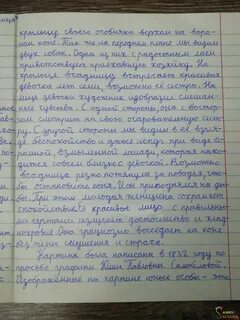 крыльце своего особняка верхом на воро-
ном коне. Так же на переднем плане мы видим
двух собак. Одна из них с радостным лаем
приветствует приехавшую хозяйку. На
крыльце всадницу встречает красивая
девочка лет семи, возможно ее сестра. На
лице девочки художник изобразил смешан-
ные чувства. С одной стороны, она с востор-
гом смотрит на свою очаровательную сест-
ру. С другой стороны мы видим в её взгля-
де беспокойство и даже испуг при виде огро-
мной, взмыленной лошади, которая нахо-
дится совсем близко с девочкой. Возможно
всадница резко потянула за поводья, что-
бы остановить коня. И он приподнялся на ды-
бы. При этом молодая женщина сохраняет
спокойствие. Её красивое лицо с правильны-
ми чертами излучает достоинство и хлад-
нокровие. Она грациозно восседает на коне
без тени смущения и страха.
Картина была написана в 1832 году по
просьбе графини Юлии Павловны Самойловой.
Изображённые на картине юные особы - это